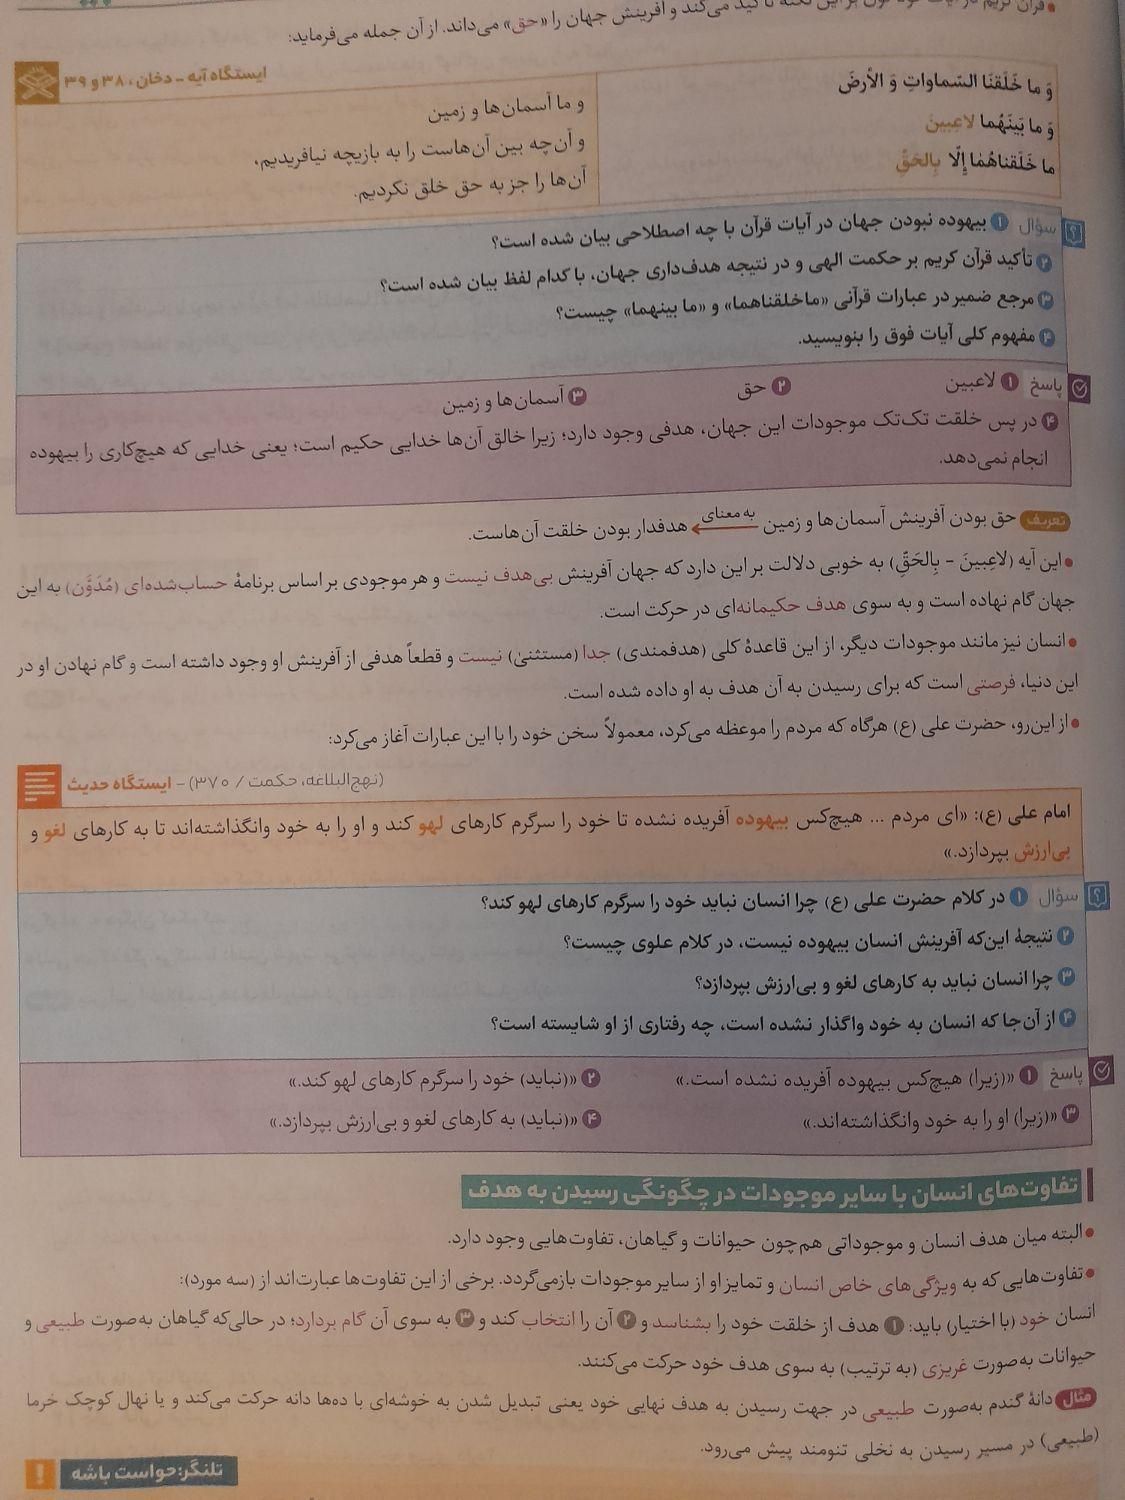 قرآن کریم در آیات خود بر این نکته تأکید می‌کند و آفرینش جهان را «حق» می‌داند. از آن جمله می‌فرماید:
ایستگاه آیه - دخان، ۳۸ و ۳۹
وَ ما خَلَقنَا السّماواتِ وَ الأرضَ
وَ ما بَینَهُما لاعِبینَ
ما خَلَقناهُمٰا إلّا بِالحَقِّ
و ما آسمان‌ها و زمین
و آن‌چه بین آن‌هاست را به بازیچه نیافریدیم،
آن‌ها را جز به حق خلق نکردیم.
سؤال ۱ بیهوده نبودن جهان در آیات قرآن با چه اصطلاحی بیان شده است؟
۲ تأکید قرآن کریم بر حکمت الهی و در نتیجه هدف‌داری جهان، با کدام لفظ بیان شده است؟
۳ مرجع ضمیر در عبارات قرآنی «ماخلقناهما» و «ما بینهما» چیست؟
۴ مفهوم کلی آیات فوق را بنویسید.
پاسخ ۱ لاعبین ۲ حق ۳ آسمان‌ها و زمین
۴ در پس خلقت تک‌تک موجودات این جهان، هدفی وجود دارد؛ زیرا خالق آن‌ها خدایی حکیم است؛ یعنی خدایی که هیچ‌کاری را بیهوده
انجام نمی‌دهد.
تعریف حق بودن آفرینش آسمان‌ها و زمین به معنای هدفدار بودن خلقت آن‌هاست.
• این آیه (لاعِبینَ - بِالحَقِّ) به خوبی دلالت بر این دارد که جهان آفرینش بی‌هدف نیست و هر موجودی بر اساس برنامهٔ حساب‌شده‌ای (مُدَوَّن) به این
جهان گام نهاده است و به سوی هدف حکیمانه‌ای در حرکت است.
• انسان نیز مانند موجودات دیگر، از این قاعدهٔ کلی (هدفمندی) جدا (مستثنیٰ) نیست و قطعاً هدفی از آفرینش او وجود داشته است و گام نهادن او در
این دنیا، فرصتی است که برای رسیدن به آن هدف به او داده شده است.
• از این‌رو، حضرت علی (ع) هرگاه که مردم را موعظه می‌کرد، معمولاً سخن خود را با این عبارات آغاز می‌کرد:
(نهج‌البلاغه، حکمت / ۳۷۰) - ایستگاه حدیث
امام علی (ع): «ای مردم ... هیچ‌کس بیهوده آفریده نشده تا خود را سرگرم کارهای لهو کند و او را به خود وانگذاشته‌اند تا به کارهای لغو و
بی‌ارزش بپردازد.»
سؤال ۱ در کلام حضرت علی (ع) چرا انسان نباید خود را سرگرم کارهای لهو کند؟
۲ نتیجهٔ این‌که آفرینش انسان بیهوده نیست، در کلام علوی چیست؟
۳ چرا انسان نباید به کارهای لغو و بی‌ارزش بپردازد؟
۴ از آن‌جا که انسان به خود واگذار نشده است، چه رفتاری از او شایسته است؟
پاسخ ۱ «(زیرا) هیچ‌کس بیهوده آفریده نشده است.» ۲ «(نباید) خود را سرگرم کارهای لهو کند.»
۳ «(زیرا) او را به خود وانگذاشته‌اند.» ۴ «(نباید) به کارهای لغو و بی‌ارزش بپردازد.»
تفاوت‌های انسان با سایر موجودات در چگونگی رسیدن به هدف
• البته میان هدف انسان و موجوداتی هم‌چون حیوانات و گیاهان، تفاوت‌هایی وجود دارد.
• تفاوت‌هایی که به ویژگی‌های خاص انسان و تمایز او از سایر موجودات بازمی‌گردد. برخی از این تفاوت‌ها عبارت‌اند از (سه مورد):
انسان خود (با اختیار) باید: ۱ هدف از خلقت خود را بشناسد و ۲ آن را انتخاب کند و ۳ به سوی آن گام بردارد؛ در حالی‌که گیاهان به‌صورت طبیعی و
حیوانات به‌صورت غریزی (به ترتیب) به سوی هدف خود حرکت می‌کنند.
مثال دانهٔ گندم به‌صورت طبیعی در جهت رسیدن به هدف نهایی خود یعنی تبدیل شدن به خوشه‌ای با ده‌ها دانه حرکت می‌کند و یا نهال کوچک خرما
(طبیعی) در مسیر رسیدن به نخلی تنومند پیش می‌رود.
تلنگر: حواست باشه